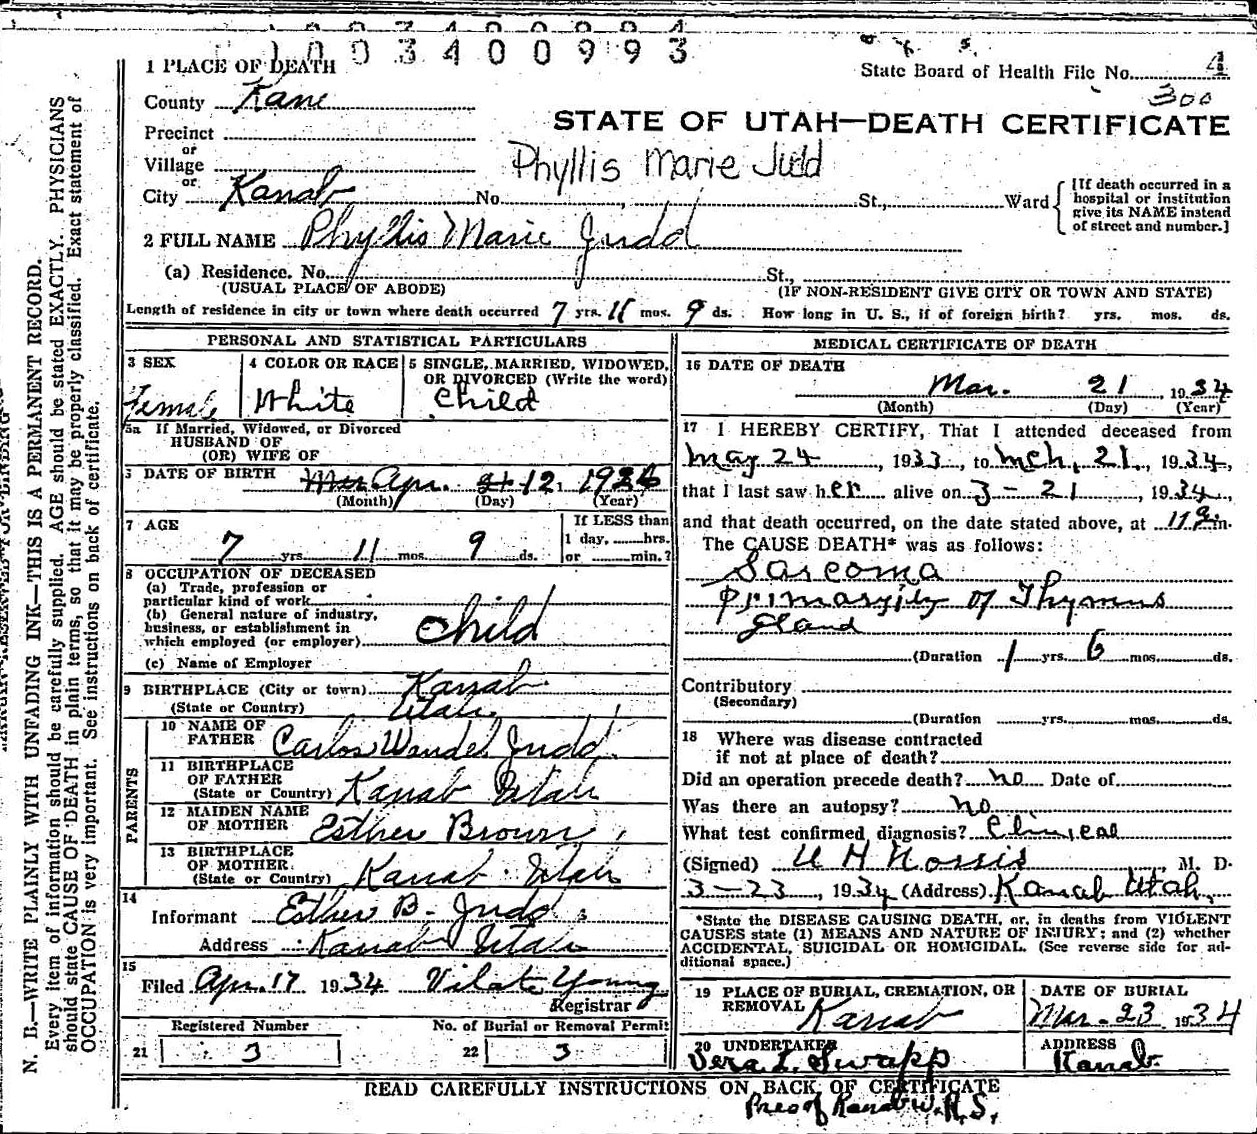 1003400993
1 PLACE OF DEATH
State Board of Health File No. 4
300
County Kane
STATE OF UTAH—DEATH CERTIFICATE
Precinct
or
Village
Phyllis Marie Judd
or
City Kanab No. , St., Ward
[If death occurred in a
hospital or institution
give its NAME instead
of street and number.]
2 FULL NAME Phyllis Marie Judd
(a) Residence. No. St.,
(USUAL PLACE OF ABODE) (IF NON-RESIDENT GIVE CITY OR TOWN AND STATE)
Length of residence in city or town where death occurred 7 yrs. 11 mos. 9 ds. How long in U. S., if of foreign birth? yrs. mos. ds.
PERSONAL AND STATISTICAL PARTICULARS
3 SEX
Female
4 COLOR OR RACE
White
5 SINGLE, MARRIED, WIDOWED,
OR DIVORCED (Write the word)
Child
5a If Married, Widowed, or Divorced
HUSBAND OF
(OR) WIFE OF
6 DATE OF BIRTH Mar Apr. 21 12, 1926
(Month) (Day) (Year)
7 AGE
7 yrs. 11 mos. 9 ds.
If LESS than
1 day, hrs.
or min.?
8 OCCUPATION OF DECEASED
(a) Trade, profession or
particular kind of work
(b) General nature of industry,
business, or establishment in
which employed (or employer) Child
(c) Name of Employer
9 BIRTHPLACE (City or town) Kanab
(State or Country) Utah
PARENTS
10 NAME OF
FATHER Carlos Wandel Judd
11 BIRTHPLACE
OF FATHER
(State or Country) Kanab Utah
12 MAIDEN NAME
OF MOTHER Esther Brown
13 BIRTHPLACE
OF MOTHER.
(State or Country) Kanab Utah
14
Informant Esther B. Judd
Address Kanab Utah
15
Filed Apr. 17 1934 Vilate Young
Registrar
Registered Number
21 3
No. of Burial or Removal Permit
22 3
MEDICAL CERTIFICATE OF DEATH
16 DATE OF DEATH
Mar. 21, 1934
(Month) (Day) (Year)
17 I HEREBY CERTIFY, That I attended deceased from
May 24, 1933, to Mch, 21, 1934,
that I last saw her alive on 3-21, 1934,
and that death occurred, on the date stated above, at 11 a.m.
The CAUSE DEATH* was as follows:
Sarcoma
primarily of Thymus
gland
(Duration 1 yrs. 6 mos. ds.
Contributory
(Secondary)
(Duration yrs. mos. ds.
18 Where was disease contracted
if not at place of death?
Did an operation precede death? no Date of
Was there an autopsy? no
What test confirmed diagnosis? Clinical
(Signed) H Norris, M. D.
3-23, 1934 (Address) Kanab Utah,
*State the DISEASE CAUSING DEATH, or, in deaths from VIOLENT
CAUSES state (1) MEANS AND NATURE OF INJURY; and (2) whether
ACCIDENTAL, SUICIDAL OR HOMICIDAL. (See reverse side for ad-
ditional space.)
19 PLACE OF BURIAL, CREMATION, OR
REMOVAL Kanab
DATE OF BURIAL
Mar-23, 1934
20 UNDERTAKER
Vera L. Swapp
ADDRESS
Kanab.
READ CAREFULLY INSTRUCTIONS ON BACK OF CERTIFICATE
N. B.—WRITE PLAINLY WITH UNFADING INK—THIS IS A PERMANENT RECORD.
Every item of information should be carefully supplied. AGE should be stated EXACTLY. PHYSICIANS
should state CAUSE OF DEATH in plain terms, so that it may be properly classified. Exact statement of
OCCUPATION is very important. See instructions on back of certificate.